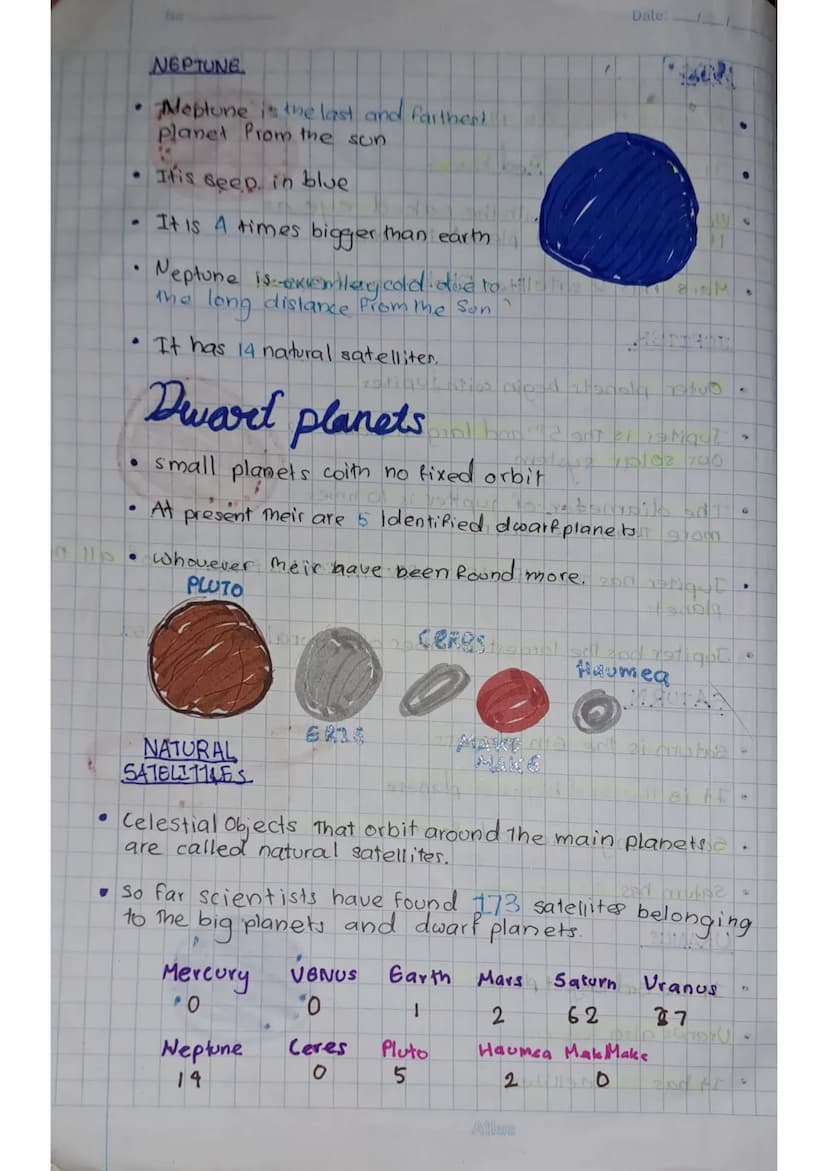 No
Date: __/__/__
NEPTUNE
• Neptune is the last and farthest
planet from the sun
• It is seep in blue
• It Is 4 times bigger than earth
• Neptune is cold due to
the long distance from the Sun
• It has 14 natural satellites.
Dwarf planets
• small planets with no fixed orbit
• At present their are 5 Identified dwarf planets
• whovever their have been found more.
PLUTO
CERES
Haumea
ERIS
MAKE
MAKE
NATURAL
SATELITTLES
• Celestial Objects that orbit around the main planets
are called natural satellites.
• So far scientists have found 173 satellites belonging
to the big planets and dwarf planets.
Mercury VENUS Earth Mars Saturn Uranus
0 0 1 2 62 27
Neptune Ceres Pluto Haumea MakMake
14 0 5 2 0
Atlas